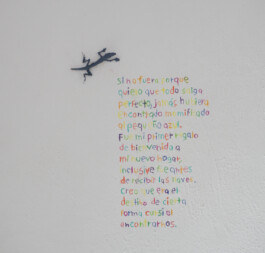 Si no fuera porque
quiero que todo salga
perfecto, jamás hubiera
encontrado momificado
al pequeño azul.
Fue mi primer regalo
de bienvenida a
mi nuevo hogar,
inclusive antes
de recibir las llaves.
Creo que era el
destino de cierta
forma cursi al
encontrarnos.